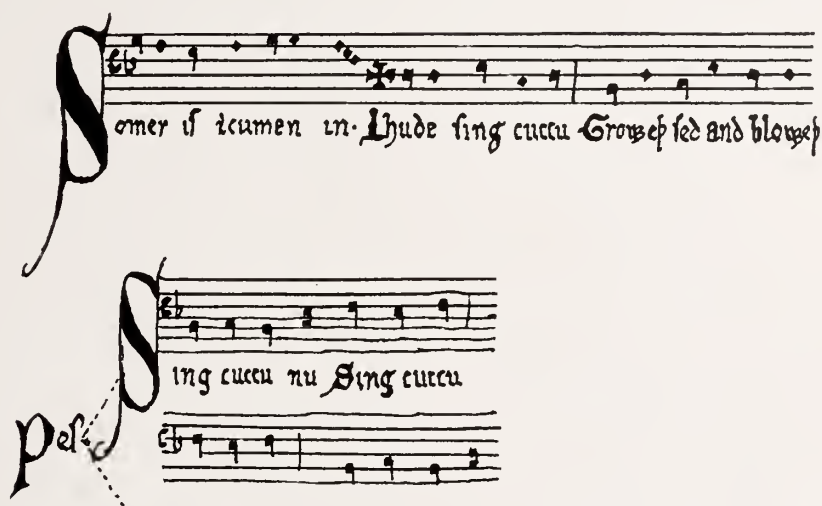 Somer iſ icumen in· Lhude ſing cuccu Groweþ ſed and bloweþ
Sing cuccu nu Sing cuccu
Peſ